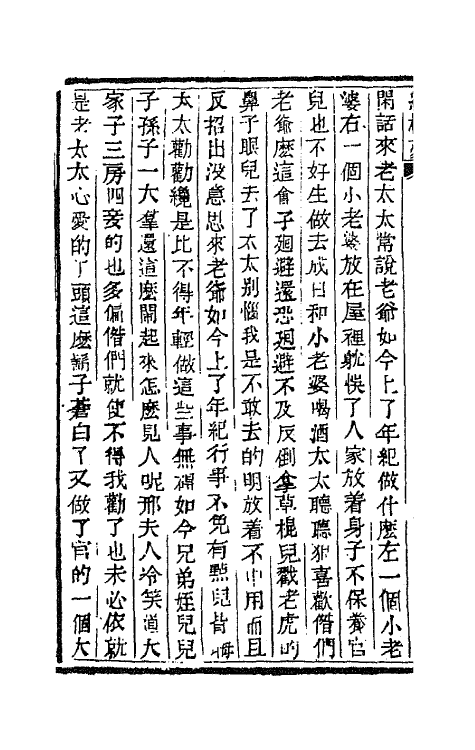 閑話來老太太常說老爺如今上了年紀做什麽左一個小老
婆右一個小老婆放在屋裡躭悞了人家放着身子不保養官
兒也不好生做去成日和小老婆喝酒太太聽聽狠喜歡偺們
老爺麽這會子廻避還恐廻避不及反倒拿草棍兒戳老虎的
鼻子眼兒去了太太别惱我是不敢去的明放着不中用而且
反招出没意思來老爺如今上了年紀行事不免有㸃兒背晦
太太勸勸纔是比不得年輕做這些事無碍如今兄弟姪兒兒
子孫子一大羣還這麽閙起來怎麽見人呢邢夫人冷笑道大
家子三房四妾的也多偏偺們就使不得我勸了也未必依就
是老太太心愛的丫頭這麽鬍子蒼白了又做了官的一個大